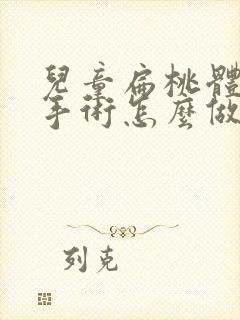 兒童扁桃體
手術怎麼做
列克